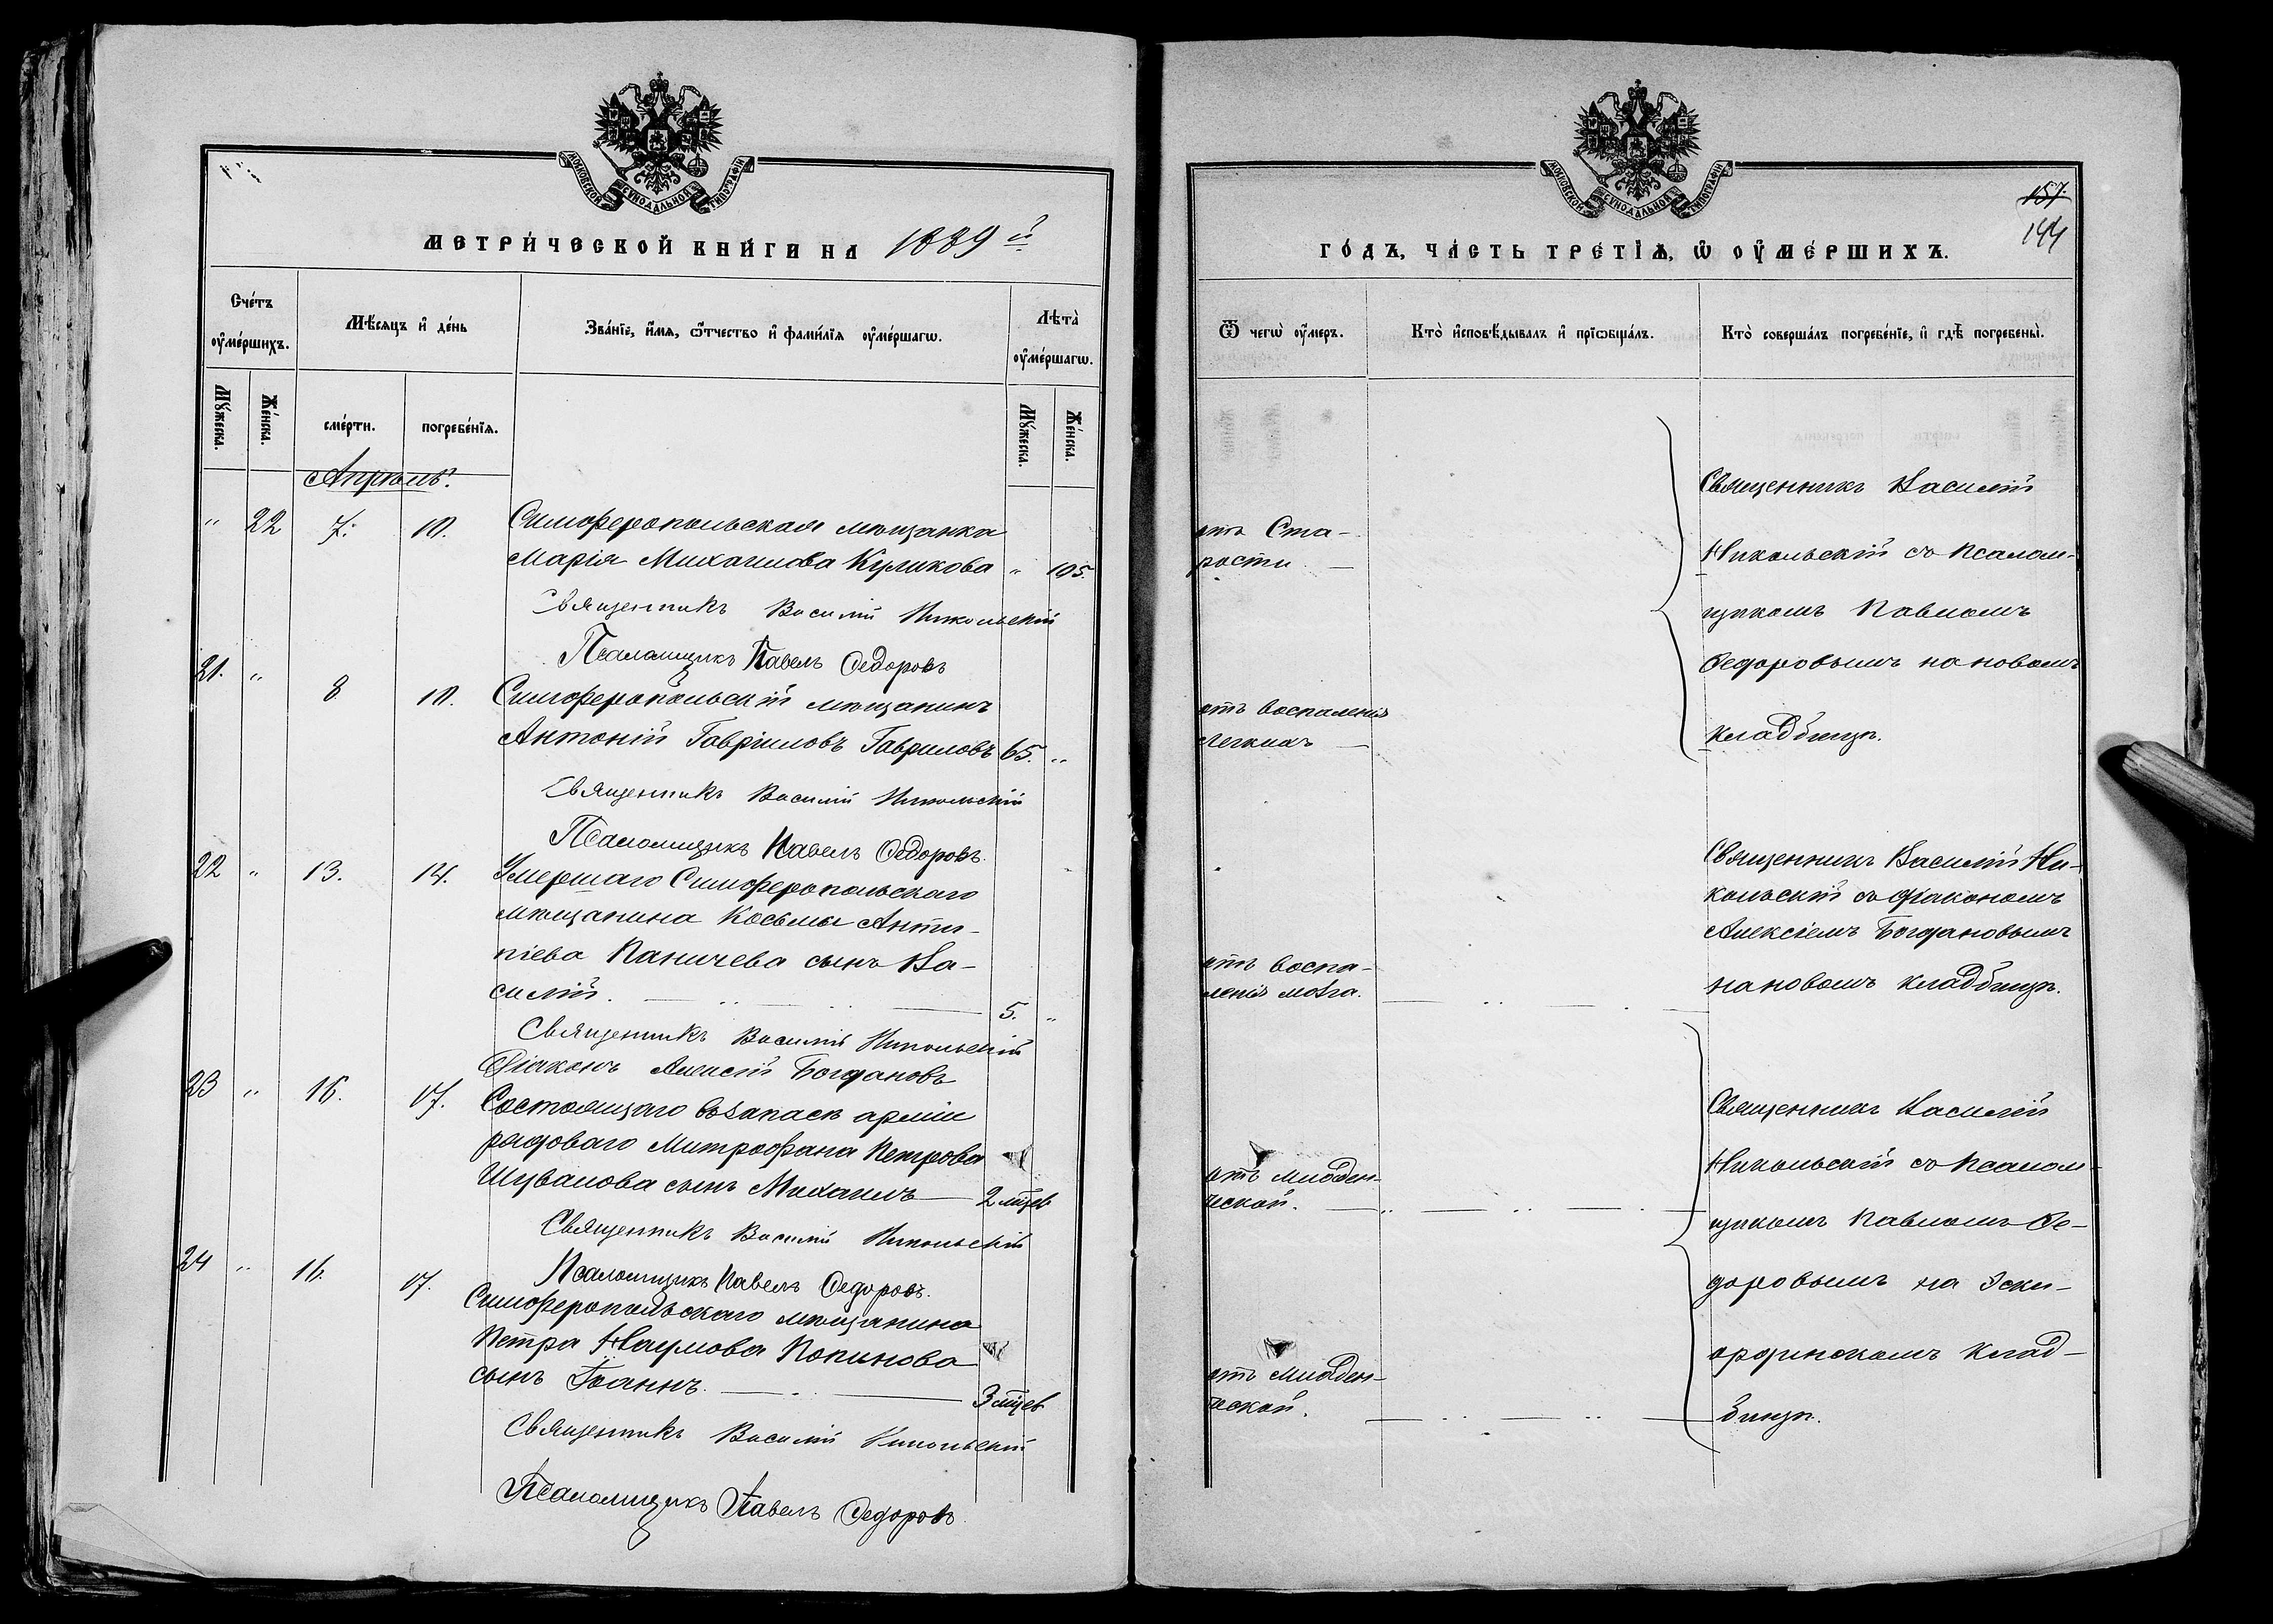 МОСКОВСКОЙ СУНОДАЛЬНОЙ ТИПОГРАФІИ
МЕТРИ́ЧЕСКОЙ КНИ́ГИ НА 1889 й
Сче́тъ ᲂу҆ме́ршихъ.
Мѣ́сяцъ и҆ де́нь
Зва́нїе, и҆́мя, ѻ҆́тчество и҆ фами́лїя ᲂу҆ме́ршагѡ.
Лѣта̀ ᲂу҆ме́ршагѡ.
Мꙋ́жеска.
Же́нска.
сме́рти.
погребе́нїя.
Мꙋ́жеска.
Же́нска.
Апрѣль.
" 22 7. 10. Симферопольская мѣщанка
Марія Михаилова Куликова " 105.
Священникъ Василій Никольскій
Псаломщикъ Павелъ Ѳедоровъ
21. " 8 10. Симферопольскій мѣщанинъ
Антоній Гавріиловъ Гавриловъ 65. "
Священникъ Василій Никольскій
Псаломщикъ Павелъ Ѳедоровъ.
22 " 13. 14. Умершаго Симферопольскаго
мѣщанина Косьмы Анти-
піева Паничева сынъ Ва-
силій. 5. "
Священникъ Василій Никольскій
Діаконъ Алексій Богдановъ
23 " 16. 17. Состоящаго въ запасѣ арміи
рядоваго Митрофана Петрова
Шувалова сынъ Михаилъ 2 мцев
Священникъ Василій Никольскій
Псаломщикъ Павелъ Ѳедоровъ.
24 " 16. 17. Симферопольскаго мѣщанина
Петра Наумова Попинова
сынъ Іоаннъ. 3 мцев
Священникъ Василій Никольскій
Псаломщикъ Павелъ Ѳедоровъ
МОСКОВСКОЙ СУНОДАЛЬНОЙ ТИПОГРАФІИ
157.
144
ГО́ДЪ, ЧА́СТЬ ТРЕ́ТЇѦ, Ѡ҆ ОУ҆МЕ́РШИХЪ.
Ѿ чегѡ̀ ᲂу҆́меръ.
Кто̀ и҆сповѣ́дывалъ и҆ прїѡбща́лъ.
Кто̀ соверша́лъ погребе́нїе, и҆ гдѣ̀ погребены̀.
отъ Ста-
рости
Священникъ Василій
Никольскій съ псалом-
щикомъ Павломъ
Ѳедоровымъ на новомъ
кладбищѣ.
отъ воспаленія
легкихъ
отъ воспа-
ленія мозга.
Священникъ Василій Ни-
кольскій съ діакономъ
Алексіемъ Богдановымъ
на новомъ кладбищѣ.
отъ младен-
ческой.
Священникъ Василій
Никольскій съ псалом-
щикомъ Павломъ Ѳе-
доровымъ на Эски-
ординскомъ клад-
бищѣ.
отъ младен-
ческой.